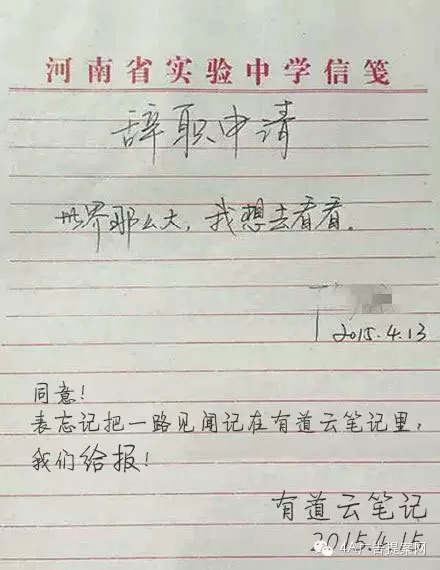 河南省实验中学信笺
辞职申请
世界那么大，我想去看看.
2015.4.13
同意！
表忘记把一路见闻记在有道云笔记里，
我们给报！
有道云笔记
2015.4.15
4A广告提案网